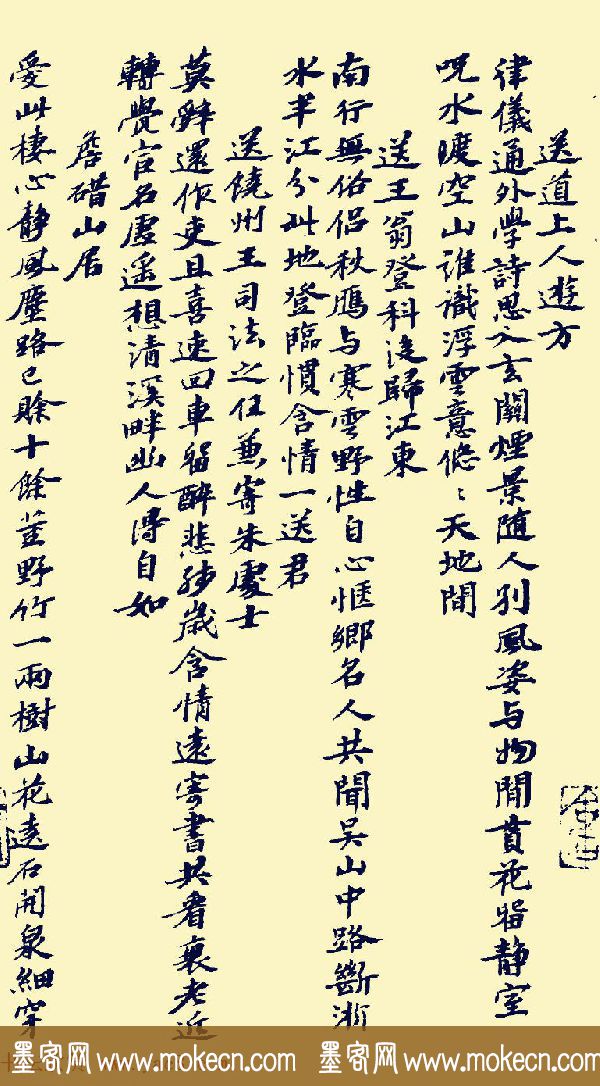 送道上人遊方
律儀通外學詩思入玄關煙景随人別風姿与物閒貫花留静室
呪水渡空山誰識浮雲意悠〻天地間
送王翁登科後歸江東
南行無俗侶秋鴈与寒雲野性自心惬鄉名人共聞吴山中路斷浙
水半江分此地登臨慣含情一送君
送饒州王司法之任兼寄朱處士
莫辭還作吏且喜速回車留醉悲殘歲含情遠寄書共看衰老近
轉覺官名虛遥想清溪畔幽人得自如
詹碏山居
愛此棲心静風塵路已賒十餘莖野竹一兩樹山花遶石開泉細穿
墨客网 www.mokecn.com 墨客网 www.mokecn.com